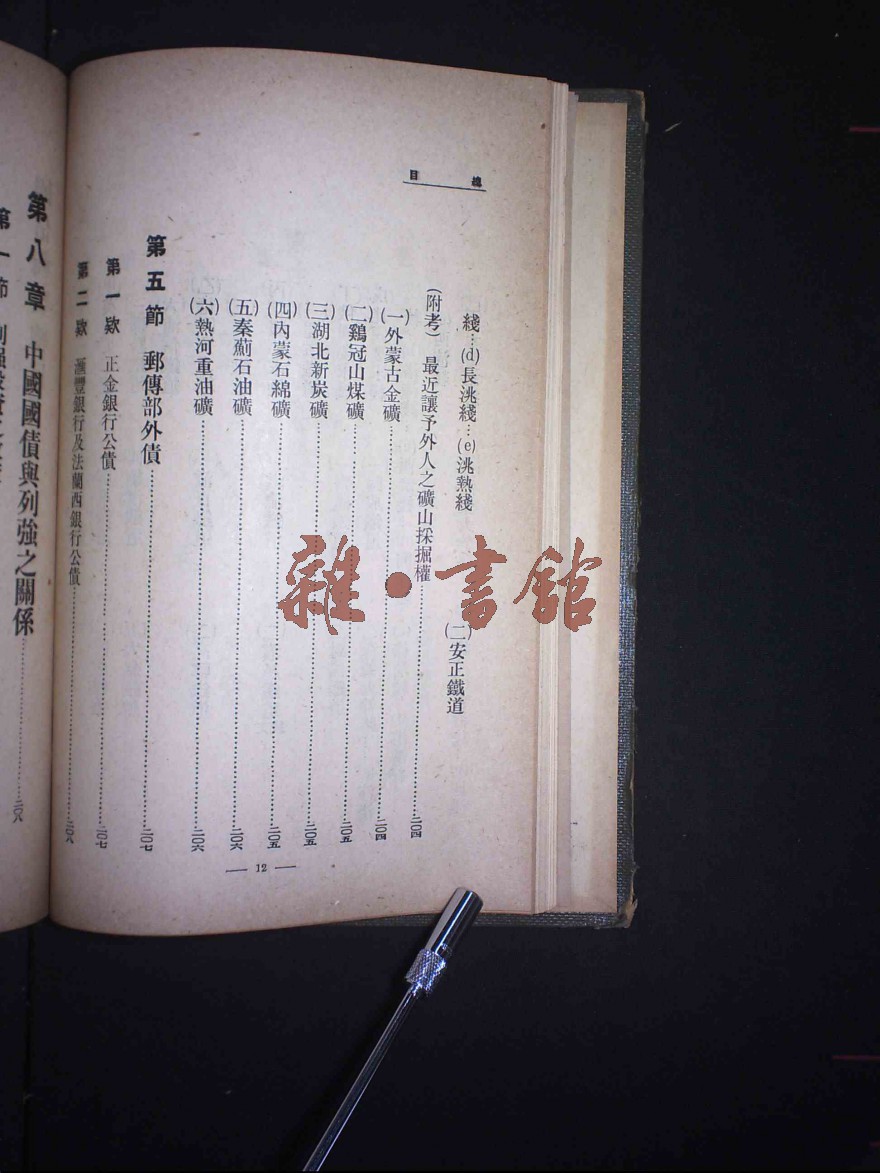 總目
綫…(d)長洮綫…(e)洮熱綫
(二)安正鐵道
(附考) 最近讓予外人之礦山採掘權……二〇四
(一)外蒙古金礦……二〇四
(二)鷄冠山煤礦……二〇五
(三)湖北新炭礦……二〇五
(四)內蒙石綿礦……二〇五
(五)秦薊石油礦……二〇六
(六)熱河重油礦……二〇六
第五節 郵傳部外債……二〇七
第一欵 正金銀行公債……二〇七
第二欵 滙豐銀行及法蘭西銀行公債……二〇八
— 12 —
第八章 中國國債與列強之關係……二〇八
第一節
雜·書館